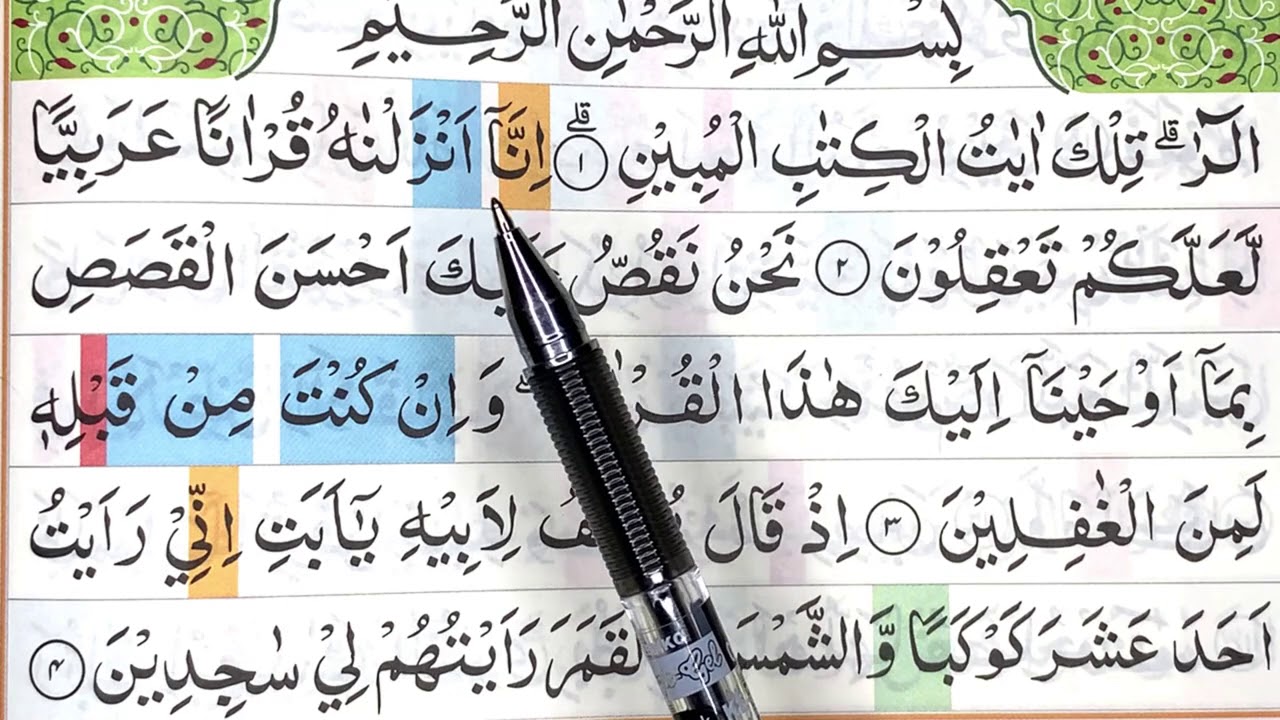 بِسْمِ اللّٰهِ الرَّحْمٰنِ الرَّحِيْمِ
الٓرٰ ۣ تِلْكَ اٰيٰتُ الْكِتٰبِ الْمُبِيْنِ ۣ ١ اِنَّاۤ اَنْزَلْنٰهُ قُرْاٰنًا عَرَبِيًّا
لَّعَلَّكُمْ تَعْقِلُوْنَ ٢ نَحْنُ نَقُصُّ اَحْسَنَ الْقَصَصِ
بِمَاۤ اَوْحَيْنَاۤ اِلَيْكَ هٰذَا وَاِنْ كُنْتَ مِنْ قَبْلِهٖ
لَمِنَ الْغٰفِلِيْنَ ٣ اِذْ قَالَ لِاَبِيْهِ يٰۤاَبَتِ اِنِّيْ رَاَيْتُ
اَحَدَ عَشَرَ كَوْكَبًا وَّالشَّمْسَ رَاَيْتُهُمْ لِيْ سٰجِدِيْنَ ٤